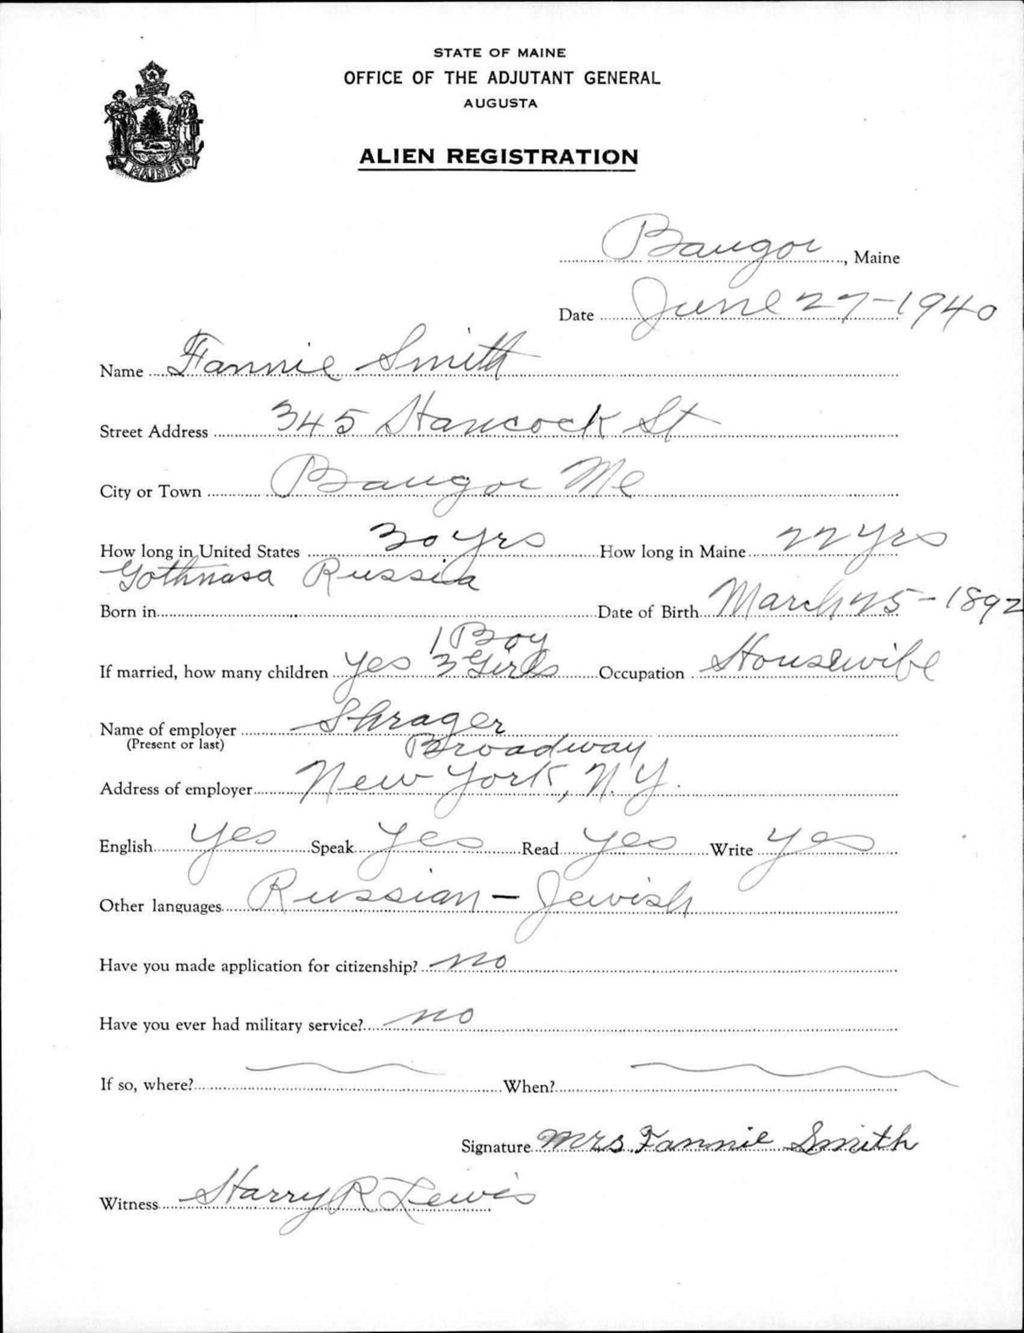 STATE OF MAINE
OFFICE OF THE ADJUTANT GENERAL
AUGUSTA
ALIEN REGISTRATION
MAINE
Bangor, Maine
Date June 27-1940
Name Fannie Smith
Street Address 345 Hancock St
City or Town Bangor Me
How long in United States 30 yrs How long in Maine 22 yrs
Russia
Born in Date of Birth March 25-1892
1 Boy
If married, how many children yes 3 Girls Occupation Housewife
Name of employer Shrager
(Present or last)
Broadway
Address of employer New York, N.Y.
English yes Speak yes Read yes Write yes
Other languages Russian - Jewish
Have you made application for citizenship? no
Have you ever had military service? no
If so, where? When?
Signature Mrs Fannie Smith
Witness Harry R Lewis